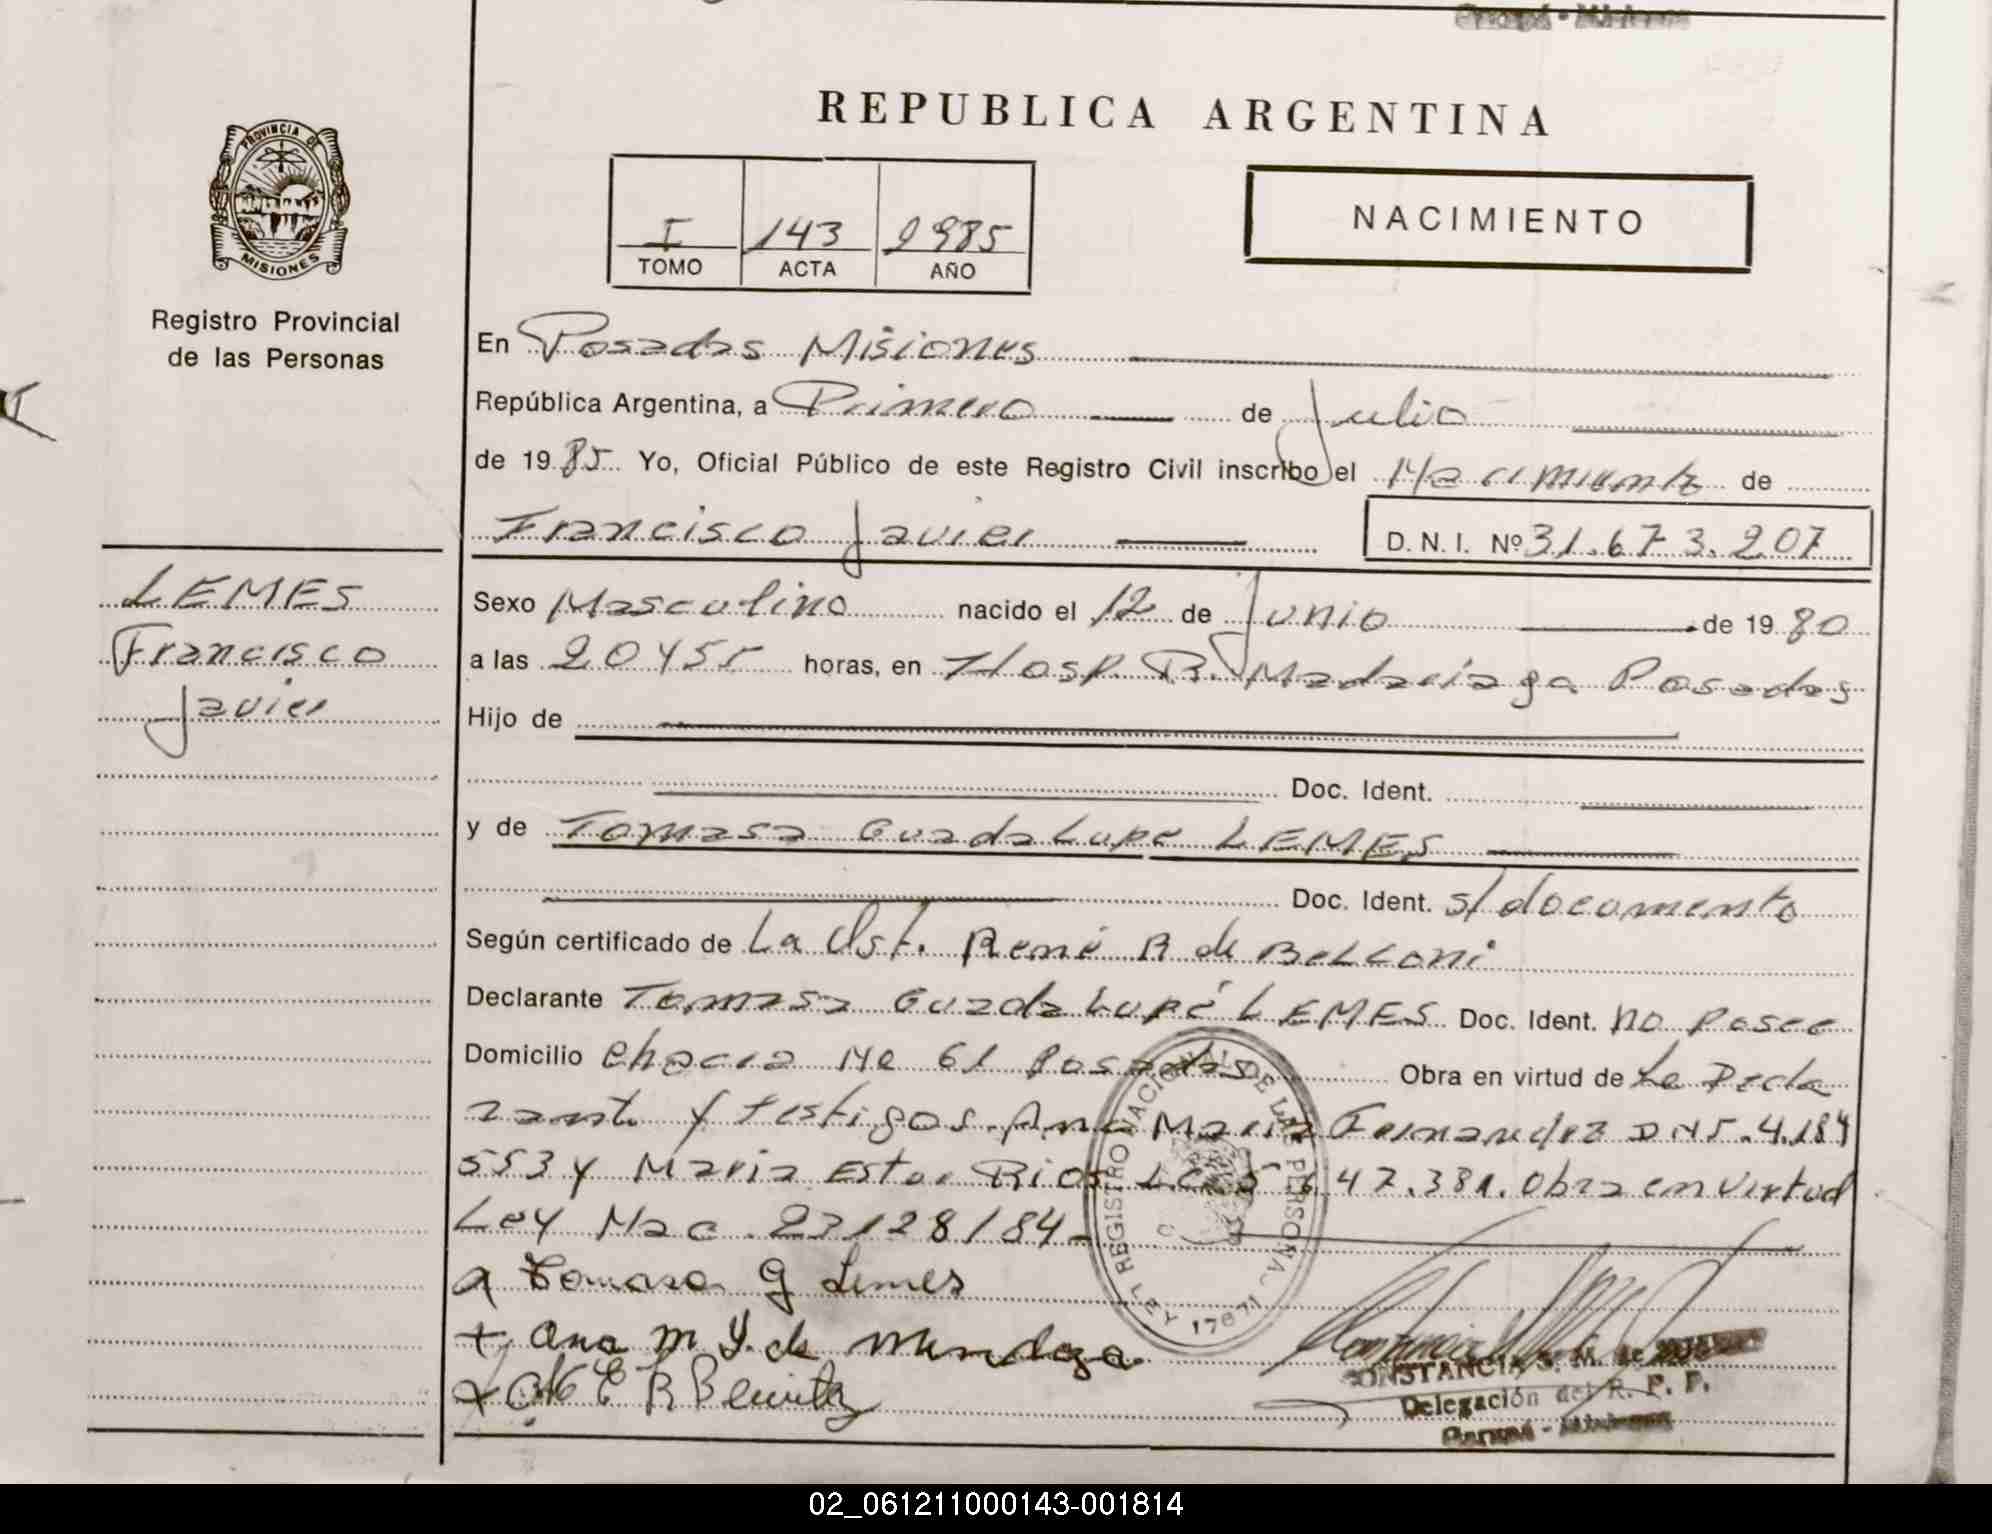 REPUBLICA ARGENTINA
PROVINCIA DE
MISIONES
Registro Provincial
de las Personas
I 143 1985
TOMO ACTA AÑO
NACIMIENTO
En Posadas Misiones
República Argentina, a Primero de Julio
de 1985 Yo, Oficial Público de este Registro Civil inscribo el Nacimiento de
Francisco Javier D. N. I. Nº 31.673.207
LEMES
Francisco
Javier
Sexo Masculino nacido el 12 de Junio de 1980
a las 20 y 55 horas, en Hosp. R. Madariaga Posadas
Hijo de
Doc. Ident.
y de Tomasa Guadalupe LEMES
Doc. Ident. s/documento
Según certificado de La Ost. René R de Belloni
Declarante Tomasa Guadalupé LEMES Doc. Ident. no posee
Domicilio Chacra Nº 61 Posadas Obra en virtud de La Decla
rante y testigos Ana María Fernandez DNI. 4.184
553 y Maria Ester Rios 47.381. Obra en virtud
Ley Nac. 23128/84-
Tomasa G Lemes
Ana M F. de Mendoza
E R Benitez
REGISTRO NACIONAL DE LAS PERSONAS
LEY 17671
CONSTANCIA S. M. de
Delegación del R. P. P.
- Misiones
02_061211000143-001814